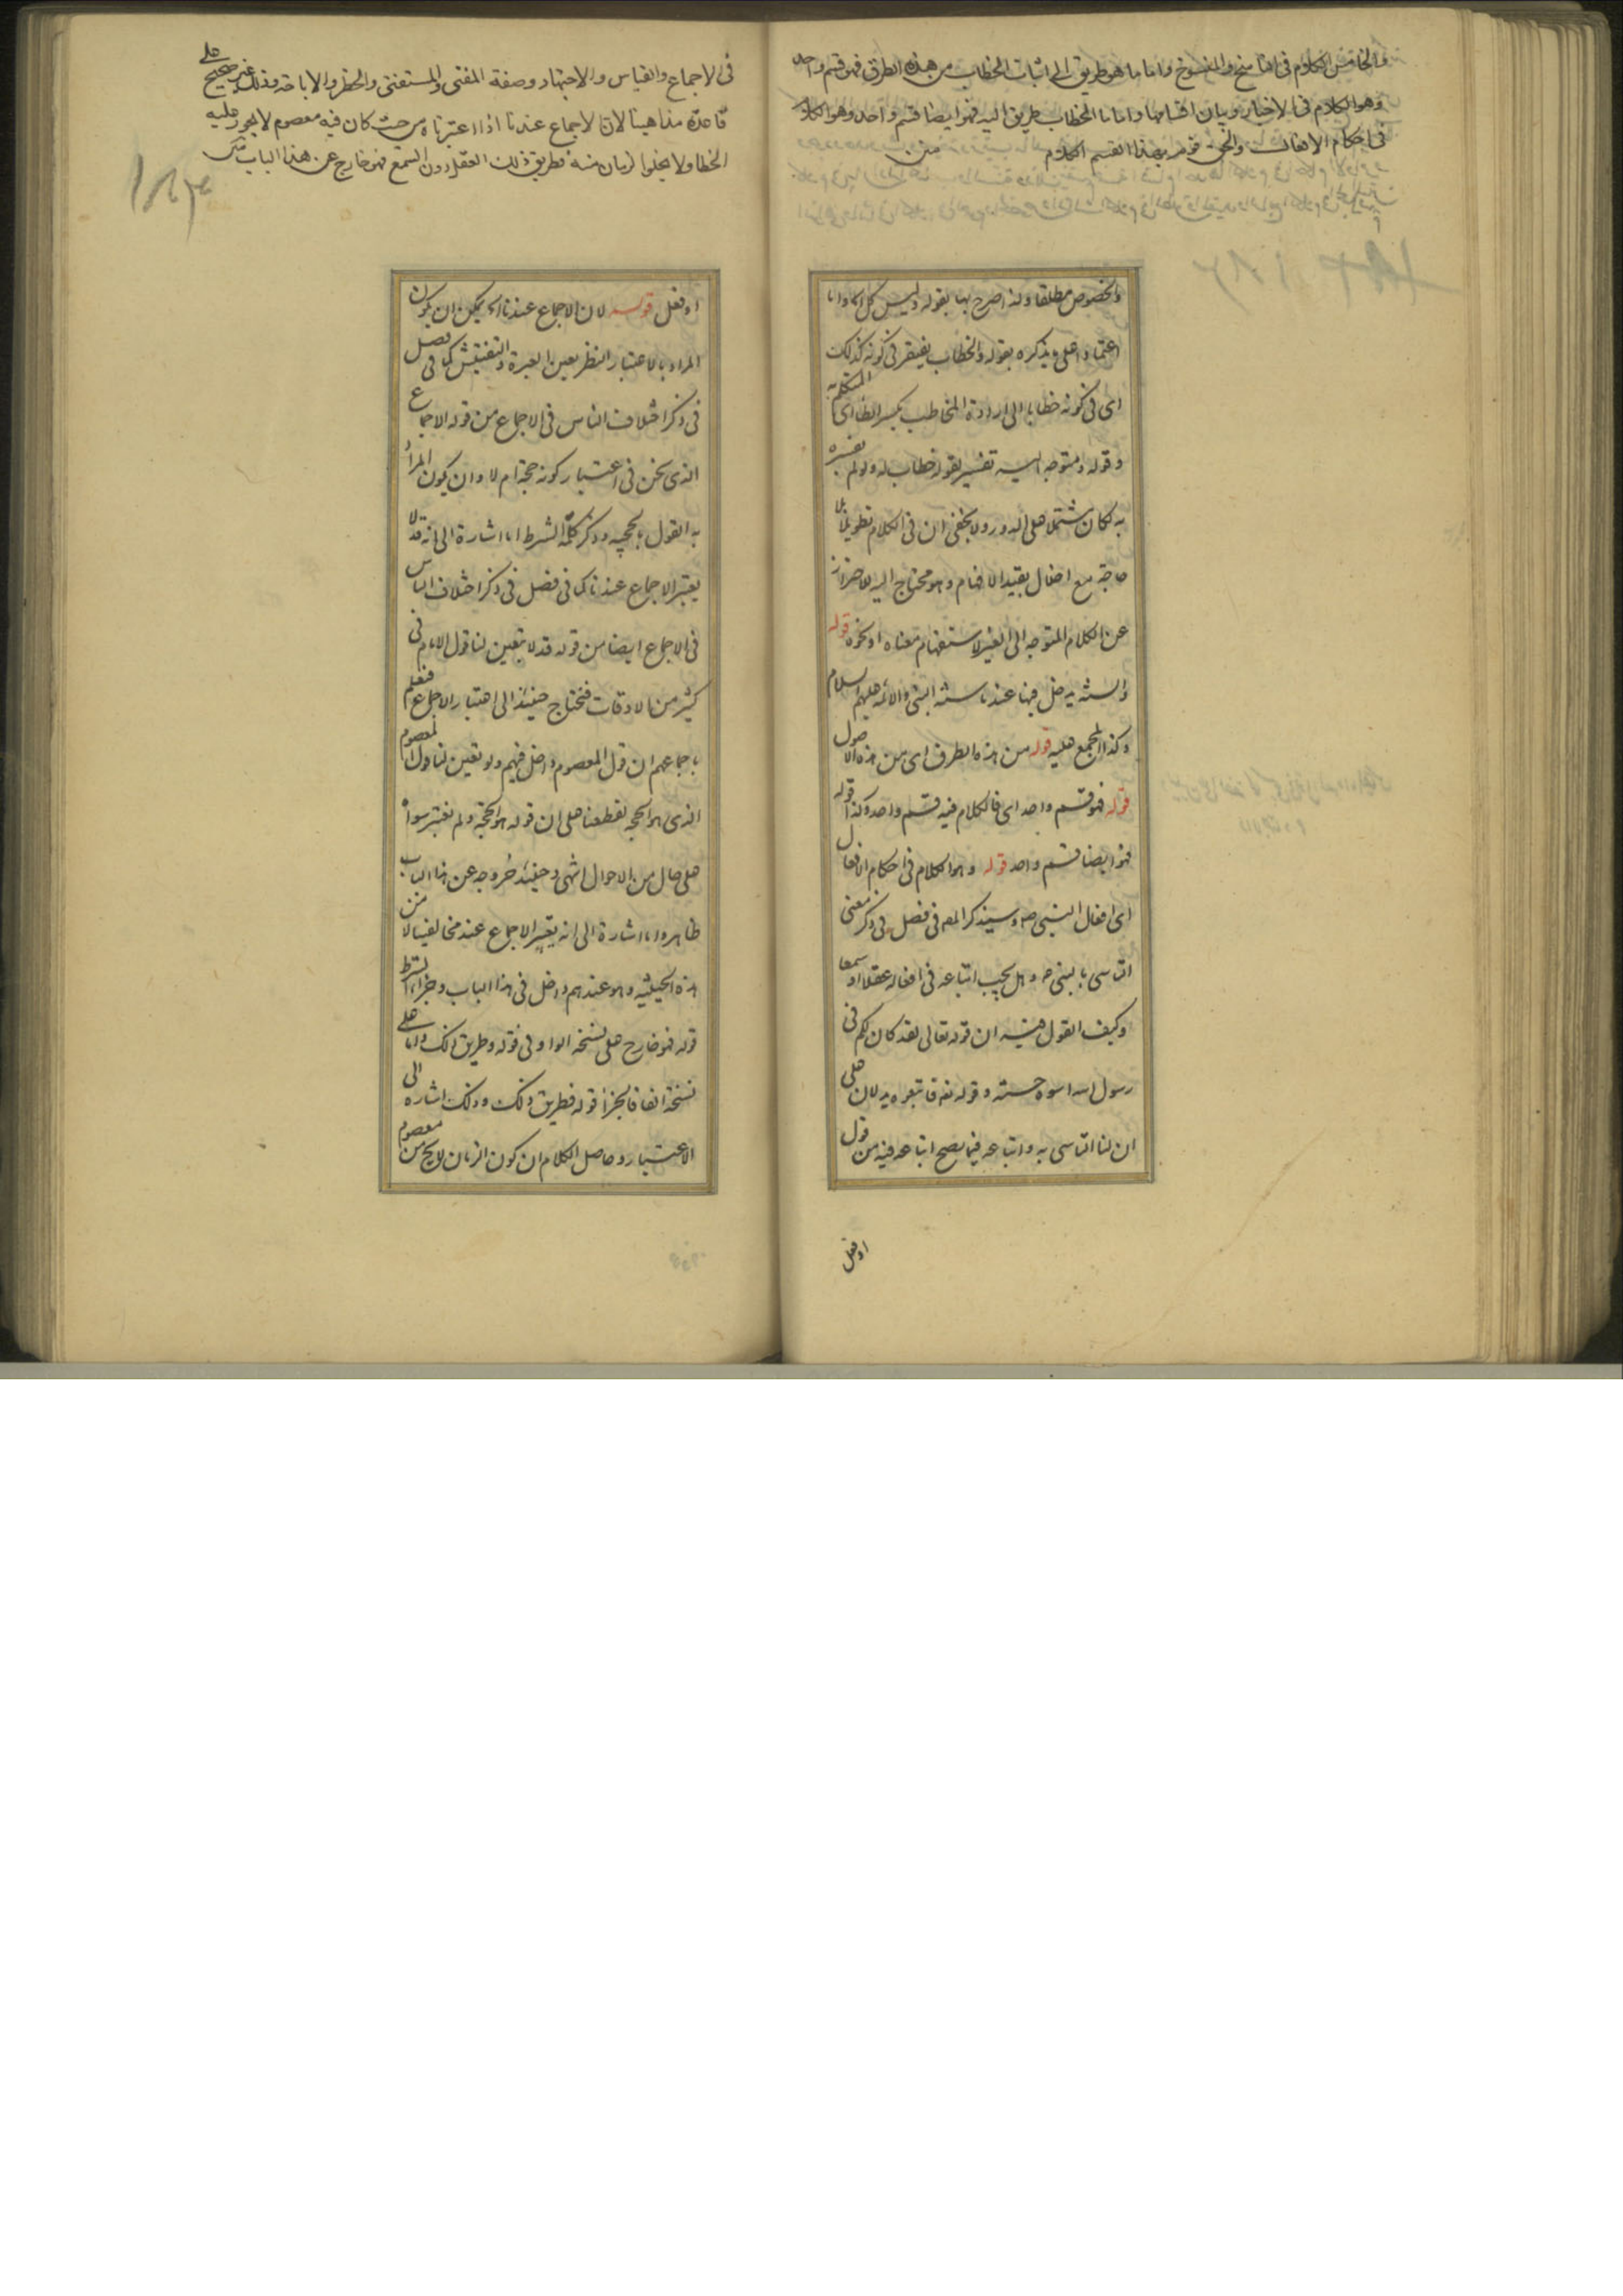 والخامس الكلام في الناسخ والمنسوخ واما ما هو طريق الى اثبات الخطاب من هذه الطرق فهو قسم واحد
وهو الكلام في الاخبار وبيان اقسامها واما ما الخطاب طريق اليه فهو ايضا قسم واحد وهو الكلام
في احكام الافعال والحق قوم بهذا القسم الكلام متن
والخصوص مطلقا ولذا صرح بها بقوله وليس كل
اعتمادا على ما يذكره بقوله والخطاب يفتقر في كونه كذلك
اى في كونه خطابا الى ارادة المخاطب بكسر الطا اى المتكلم به
وقوله ومتوجه اليه تفسير لقوله خطاب له ولو لم يفسره
به لكان مشتملا على الدور ولا يخفى ان في الكلام تطويلا بلا
حاجة مع اخلال بقيد الافهام وهو محتاج اليه للاحتراز
عن الكلام المتوجه الى الغير لاستفهام معناه او نحوه قوله
والسنة يدخل فيها عندنا سنة النبي والائمة عليهم السلام
وكذا المجمع عليه قوله من هذه الطرق اى من هذه الاصول
قوله فهو قسم واحد اى فالكلام فيه قسم واحد وكذا قوله
فهو ايضا قسم واحد قوله وهو الكلام في احكام الافعال
اى افعال النبي ص وسيذكر المص في فصل في ذكر معنى
التاسى بالنبي ص وهل يجب اتباعه في افعاله عقلا او سمعا
وكيف القول فيه ان قوله تعالى لقد كان لكم في
رسول الله اسوة حسنة وقوله تع فاتبعوه يدلان على
ان لنا التاسى به واتباعه فيما يصح اتباعه فيه من قول
او فعل
في الاجماع والقياس والاجتهاد وصفة المفتى والمستفتى والحظر والاباحة وذلك غير صحيح على
قاعدة مذاهبنا لان الاجماع عندنا اذا اعتبرناه من حيث كان فيه معصوم لا يجوز عليه
الخطا ولا يخلوا الزمان منه فطريق ذلك العقل دون السمع فهو خارج عن هذا الباب متن
او فعل قوله لان الاجماع عندنا اه يمكن ان يكون
المراد بالاعتبار النظر بعين العبرة والتفتيش كما في فصل
في ذكر اختلاف الناس في الاجماع من قوله الاجماع
الذى نحن في اعتبار كونه حجة ام لا وان يكون المراد
به القول بالحجية وذكر كلمة الشرط اما اشارة الى انه قد لا
يعتبر الاجماع عندنا كما في فصل في ذكر اختلاف الناس
في الاجماع ايضا من قوله قد لا يتعين لنا قول الامام في
كثير من الاوقات فنحتاج حينئذ الى اعتبار الاجماع فنعلم
باجماعهم ان قول المعصوم داخل فيهم ولو تعين لنا قول المعصوم
الذى هو الحجة لقطعنا على ان قوله هو الحجة ولم نعتبر سواه
على حال من الاحوال انتهى وحينئذ خروجه عن هذا الباب
ظاهر واما اشارة الى انه يعتبر الاجماع عند مخالفينا لا من
هذه الحيثية وهو عندهم داخل في هذا الباب وجزاء الشرط
قوله فهو خارج على نسخة الواو في قوله وطريق ذلك واما على
نسخة الفا فالجزا قوله فطريق ذلك وذلك اشارة الى
الاعتبار وحاصل الكلام ان كون الزمان لا يخ من معصوم